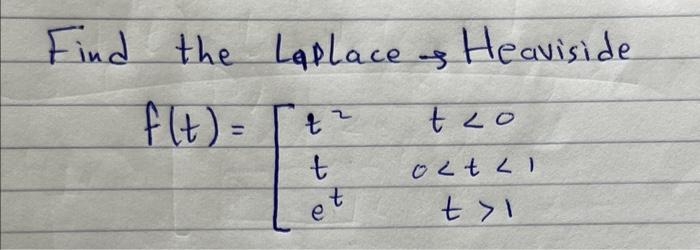 Find the Laplace → Heaviside
f(t) = [ t² t < 0
t 0 < t < 1
eᵗ t > 1